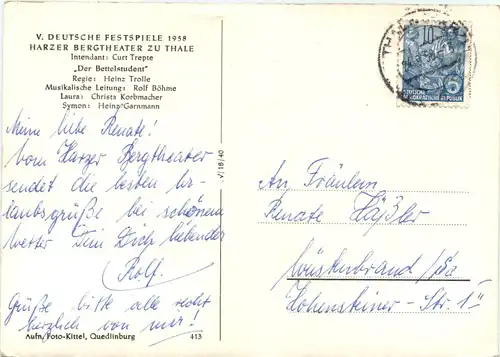 V. DEUTSCHE FESTSPIELE 1958
HARZER BERGTHEATER ZU THALE
Intendant: Curt Trepte
„Der Bettelstudent"
Regie: Heinz Trolle
Musikalische Leitung: Rolf Böhme
Laura: Christa Korbmacher
Symon: Heinz Garnmann
Meine liebe Renate!
Vom Harzer Bergtheater
sendet die besten Ur-
laubsgrüße bei schönem
Wetter Dein Dich liebender
Rolf.
Grüße bitte alle recht
herzlich von mir!
Aufn. Foto-Kittel, Quedlinburg 413
V/18/40
10
DEUTSCHE
DEMOKRATISCHE REPUBLIK
An Fräulein
Renate Häßler
Wüstenbrand/Sa
Hohensteiner-Str. 1